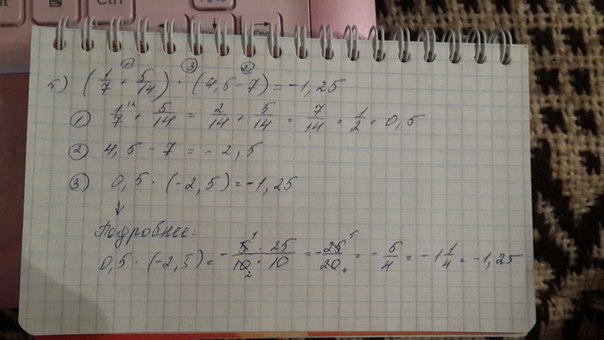 Ctrl
① ③ ②
5) (1/7 + 5/14) · (4,5 - 7) = -1,25
① 1/7 \2 + 5/14 = 2/14 + 5/14 = 7/14 = 1/2 = 0,5
② 4,5 - 7 = -2,5
③ 0,5 · (-2,5) = -1,25
↓
Подробнее:
0,5 · (-2,5) = - 5 1 · 25 / 10 2 · 10 = - 25 5 / 20 4 = - 5/4 = -1 1/4 = -1,25